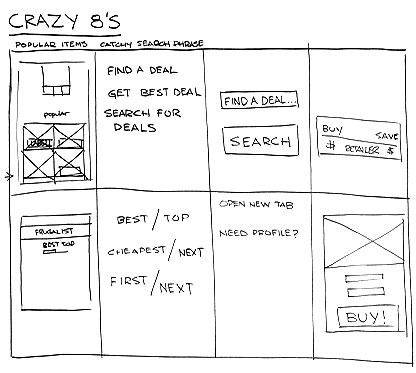 CRAZY 8'S
POPULAR ITEMS
CATCHY SEARCH PHRASE
popular
FIND A DEAL
GET BEST DEAL
SEARCH FOR
DEALS
FIND A DEAL...
SEARCH
BUY SAVE
$ RETAILER $
FRUGALIST
BEST TOP
BEST / TOP
CHEAPEST / NEXT
FIRST / NEXT
OPEN NEW TAB
NEED PROFILE?
BUY!